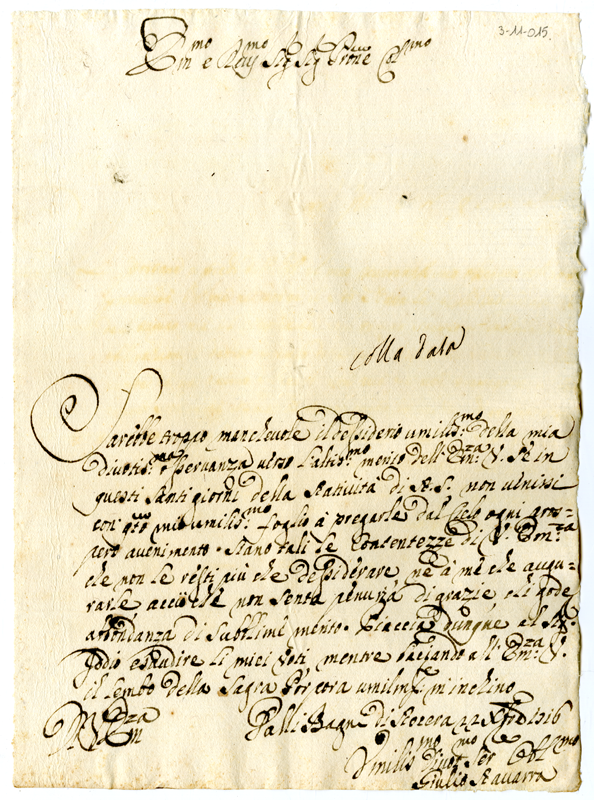 3-11-015
Em.mo e Rev Sig Sig Prone Col.mo
colla data
Sarebbe troppo manchevole il desiderio umiliss.mo della mia
divotis.ma osservanza verso l'altiss.mo merito dell'Em.za V. Se in
questi santi giorni della Natività di N. S. non venissi
con q.to mio umiliss.mo foglio à pregarle dal Cielo ogni pros=
pero avenimento. Siano tali le Contentezze di V. Em.za
che non le resti più che dessiderare nè à mè che augu=
rarle acciò che non senta penuria di grazie chi gode
abbondanza di sublime merito. Piaccia dunque al Sig.
Iddio essaudire li miei voti mentre baciando all'Em.za V.
il lembo della Sagra Porpora umilm.te m'inchino
Em.za Dalli Bagni di Nocera 22 Xbre 1716
Umiliss.mo Divot.mo Ser Obl.mo
Giulio Navarra